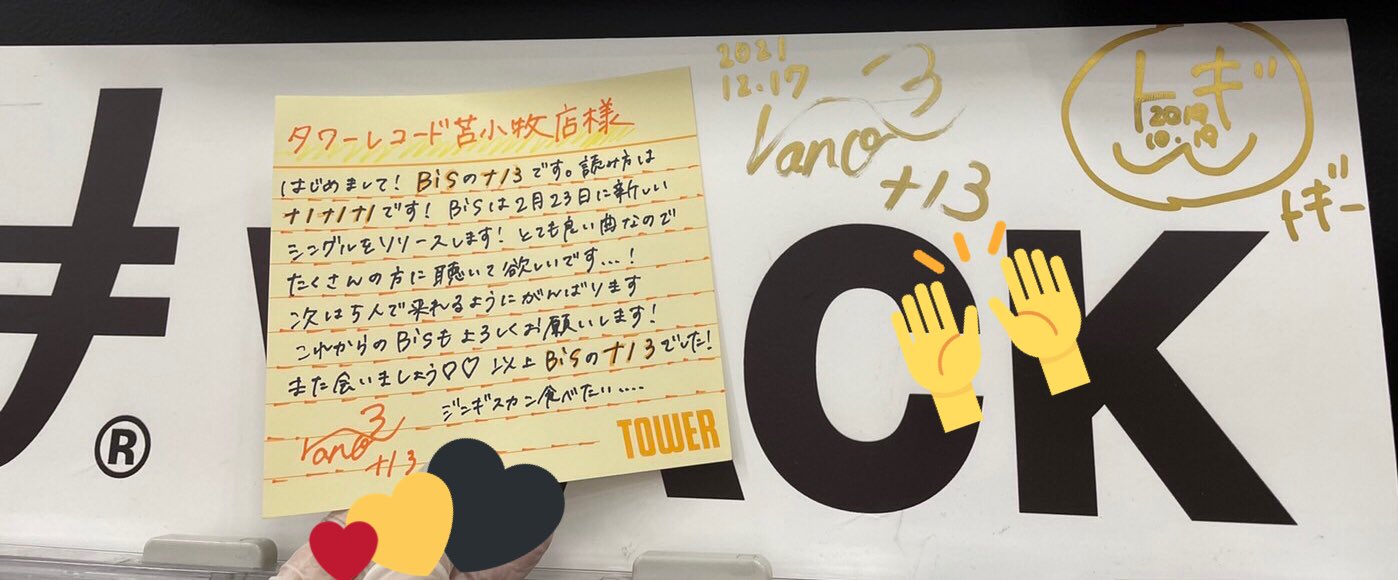 タワーレコード苫小牧店様
はじめまして! BiSのナ13です。読み方は
ナ1ナ1ナ1です! BiSは2月23日に新しい
シングルをリリースします! とても良い曲なので
たくさんの方に聴いて欲しいです...!
次は5人で来れるようにがんばります
これからのBiSもよろしくお願いします!
また会いましょう♡♡ 以上 BiSのナ13でした!
ジンギスカン食べたい....
ナ13
TOWER
2021
12.17
3
ナ13
トギ
2019
10.19
トギー
®
CK